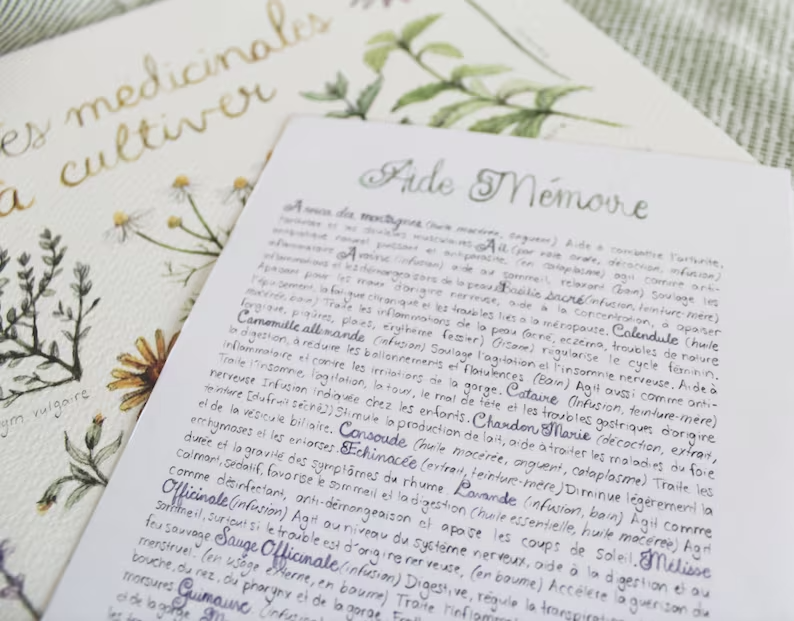 médicinales
à cultiver
thym vulgaire
Aide Mémoire
Arnica des montagnes (huile macérée, onguent) Aide à combattre l'arthrite,
l'arthrose et les douleurs musculaires Ail (par voie orale, décoction, infusion)
antibiotique naturel puissant et antiparasite. (en cataplasme) agit comme anti-
inflammatoire. Avoine (infusion) aide au sommeil, relaxant (bain) soulage les
inflammations et les démangeaisons de la peau Basilic sacré (infusion, teinture-mère)
Apaisant pour les maux d'origine nerveuse, aide à la concentration, à apaiser
l'épuisement, la fatigue chronique et les troubles liés à la ménopause. Calendule (huile
macérée, bain) Traite les inflammations de la peau (acné, eczéma, troubles de nature
fongique, piqûres, plaies, érythème fessier) (tisane) régularise le cycle féminin.
Camomille allemande (infusion) Soulage l'agitation et l'insomnie nerveuse. Aide à
la digestion, à réduire les ballonnements et flatulences (Bain) Agit aussi comme anti-
inflammatoire et contre les irritations de la gorge. Cataire (Infusion, teinture-mère)
Traite l'insomnie, l'agitation, la toux, le mal de tête et les troubles gastriques d'origine
nerveuse Infusion indiquée chez les enfants. Chardon Marie (décoction, extrait,
teinture [du fruit séché]) Stimule la production de lait, aide à traiter les maladies du foie
et de la vésicule biliaire. Consoude (huile macérée, onguent, cataplasme) Traite les
ecchymoses et les entorses. Echinacée (extrait, teinture-mère) Diminue légèrement la
durée et la gravité des symptômes du rhume. Lavande (infusion, bain) Agit comme
calmant, sédatif, favorise le sommeil et la digestion (huile essentielle, huile macérée) Agit
comme désinfectant, anti-démangeaison et apaise les coups de soleil. Mélisse
Officinale (infusion) Agit au niveau du système nerveux, aide à la digestion et au
sommeil, surtout si le trouble est d'origine nerveuse, (en baume) Accélère la guérison du
feu sauvage Sauge Officinale (infusion) Digestive, régule la transpiration
menstruel. (en usage externe, en baume) Traite l'inflam
bouche, du nez, du pharynx et de la gorge.
morsures Guimauve (infusion
et de la gorge.